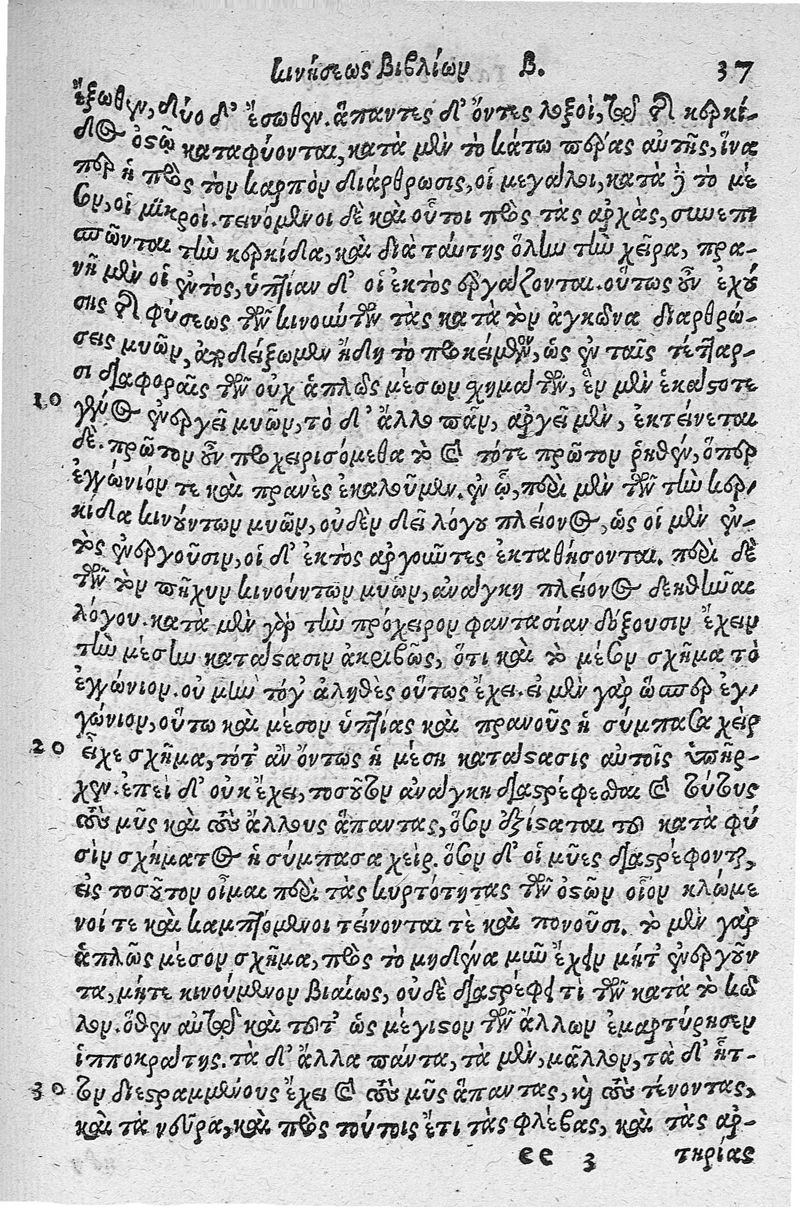 κινήσεως Βιβλίωρ Β. 37
ἔξωθεν, δύο δ' ἔσωθεν. ἅπαντες δ' ὄντες λοξοὶ, τῷ τῆς κερκί-
δος ὀστῷ καταφύονται, κατὰ μὲν τὸ κάτω πέρας αὐτῆς, ἵνα
περ ἡ πρὸς τὸν καρπὸν διάρθρωσις, οἱ μεγάλοι, κατὰ δὲ τὸ μέ
σον, οἱ μικροί. τεινόμενοι δὲ καὶ οὗτοι πρὸς τὰς ἀρχὰς, συνεπι
σπῶνται τὴν κερκίδα, καὶ διὰ ταύτης ὅλην τὴν χεῖρα, πρα-
νῆ μὲν οἱ ἐντὸς, ὑπτίαν δ' οἱ ἐκτὸς ἐργάζονται. οὕτως οὖν ἐχού
σης τῆς φύσεως τῶν κινούντων τὰς κατὰ τὸν ἀγκῶνα διαρθρώ-
σεις μυῶν, ἀποδείξωμεν ἤδη τὸ προκείμενον, ὡς ἐν ταῖς τέτταρ-
σι διαφοραῖς τῶν οὐχ ἁπλῶς μέσων σχημάτων, ἓν μὲν ἑκάστοτε
10 γένος ἐνεργεῖ μυῶν, τὸ δ' ἄλλο πᾶν, ἀργεῖ μὲν, ἐκτείνεται
δὲ. πρῶτον οὖν προχειρισόμεθα τὸ καὶ τότε πρῶτον ῥηθὲν, ὅπερ
ἐγγώνιόν τε καὶ πρανὲς ἐκαλοῦμεν. ἐν ᾧ, περὶ μὲν τῶν τὴν κερ-
κίδα κινούντων μυῶν, οὐδὲν δεῖ λόγου πλείονος, ὡς οἱ μὲν ἐν-
τὸς ἐνεργοῦσιν, οἱ δ' ἐκτὸς ἀργοῦντες ἐκταθήσονται. περὶ δὲ
τῶν τὸν πῆχυν κινούντων μυῶν, ἀνάγκη πλείονος δεηθῆναι
λόγου. κατὰ μὲν γὰρ τὴν πρόχειρον φαντασίαν δόξουσιν ἔχειν
τὴν μέσην κατάστασιν ἀκριβῶς, ὅτι καὶ τὸ μέσον σχῆμα τὸ
ἐγγώνιον. οὐ μὴν τόγ' ἀληθὲς οὕτως ἔχει. εἰ μὲν γὰρ ὥσπερ ἐγ-
γώνιον, οὕτω καὶ μέσον ὑπτίας καὶ πρανοῦς ἡ σύμπασα χεὶρ
20 εἶχε σχῆμα, τότ' ἂν ὄντως ἡ μέση κατάστασις αὐτοῖς ὑπῆρ-
χεν. ἐπεὶ δ' οὐκ ἔχει, τοσοῦτον ἀνάγκη διαστρέφεσθαι καὶ τούτους
τοὺς μῦς καὶ τοὺς ἄλλους ἅπαντας, ὅσον ἐξίσταται τοῦ κατὰ φύ
σιν σχήματος ἡ σύμπασα χείρ. ὅσον δ' οἱ μῦες διαστρέφονται,
εἰς τοσοῦτον οἶμαι περὶ τὰς κυρτότητας τῶν ὀστῶν οἷον κλώμε
νοί τε καὶ καμπτόμενοι τείνονταί τε καὶ πονοῦσι. τὸ μὲν γὰρ
ἁπλῶς μέσον σχῆμα, πρὸς τὸ μηδένα μῦν ἔχειν μήτ' ἐνεργοῦν
τα, μήτε κινούμενον βιαίως, οὐδὲ διαστρέφει τὶ τῶν κατὰ τὸ κῶ
λον. ὅθεν αὐτῷ καὶ τοῦτ' ὡς μέγιστον τῶν ἄλλων ἐμαρτύρησεν
ἱπποκράτης. τὰ δ' ἄλλα πάντα, τὰ μὲν, μᾶλλον, τὰ δ' ἧτ-
30 τον διεστραμμένους ἔχει καὶ τοὺς μῦς ἅπαντας, καὶ τοὺς τένοντας,
καὶ τὰ νεῦρα, καὶ πρὸς τούτοις ἔτι τὰς φλέβας, καὶ τὰς ἀρ-
ee 3 τηρίας